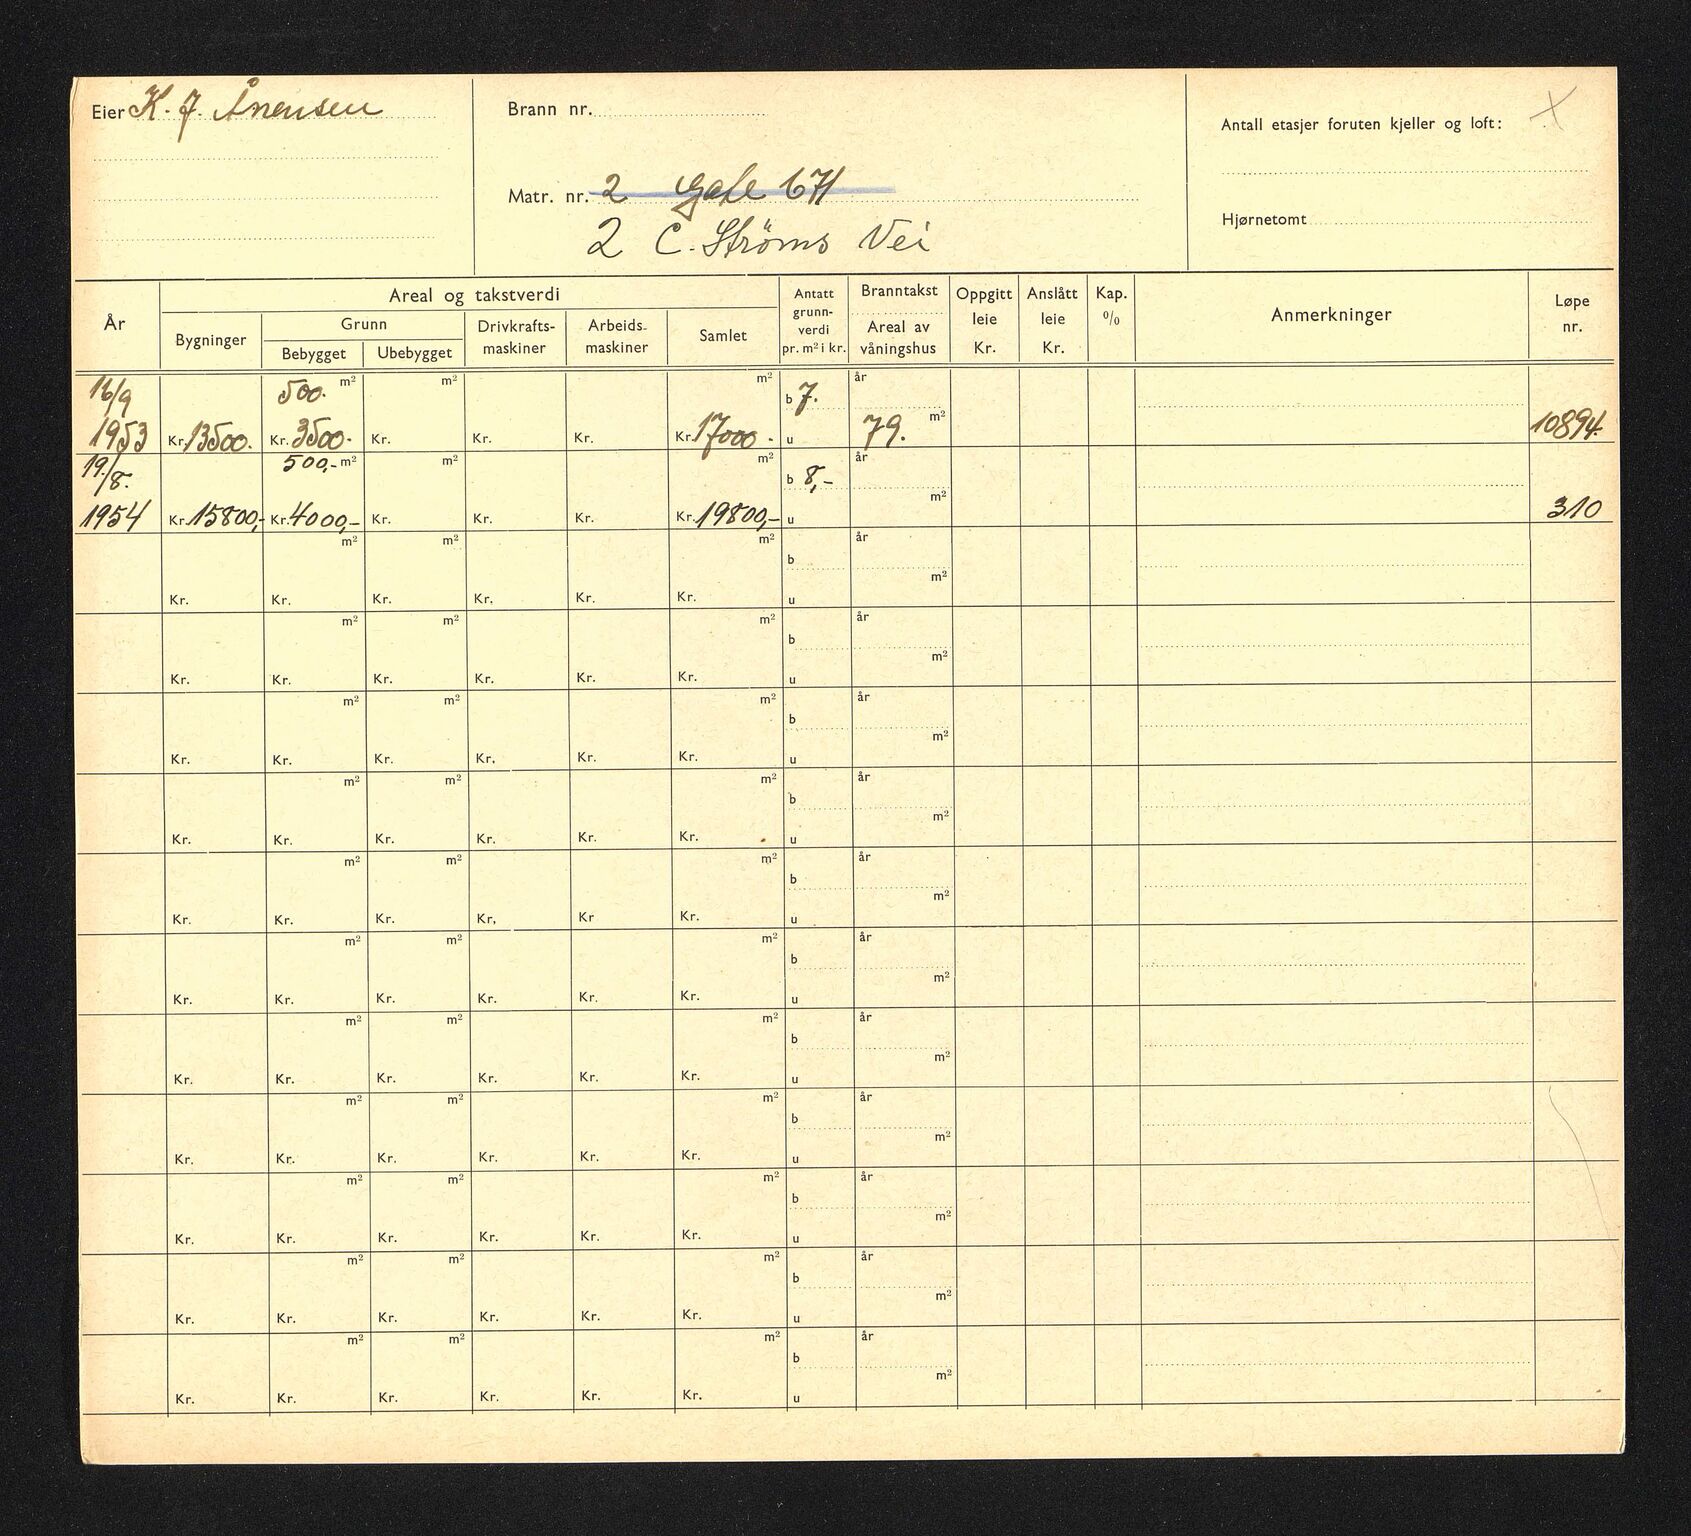 Eier K. J. Ånensen
Brann nr.
Antall etasjer foruten kjeller og loft:
Matr. nr. 2 Gate 671
Hjørnetomt
2 C. Ströms Vei
År
Areal og takstverdi
Bygninger
Grunn
Bebygget
Ubebygget
Drivkrafts-
maskiner
Arbeids-
maskiner
Samlet
Antatt
grunn-
verdi
pr. m² i kr.
Branntakst
Areal av
våningshus
Oppgitt
leie
Kr.
Anslått
leie
Kr.
Kap.
%
Anmerkninger
Løpe
nr.
16/9 500. m² m² m² b 7. år
1953 Kr. 13500. Kr. 3500. Kr. Kr. Kr. Kr. 17000. u 79. m² 10894.
19./8. 500,- m² m² m² b 8,- år
1954 Kr. 15800,- Kr. 4000,- Kr. Kr. Kr. Kr. 19800,- u m² 310
m² m² m² b år
Kr. Kr. Kr. Kr. Kr. Kr. u m²
m² m² m² b år
Kr. Kr. Kr. Kr. Kr. Kr. u m²
m² m² m² b år
Kr. Kr. Kr. Kr. Kr. Kr. u m²
m² m² m² b år
Kr. Kr. Kr. Kr. Kr. Kr. u m²
m² m² m² b år
Kr. Kr. Kr. Kr, Kr Kr. u m²
m² m² m² b år
Kr. Kr. Kr. Kr. Kr. Kr. u m²
m² m² m² b år
Kr. Kr. Kr. Kr. Kr. Kr. u m²
m² m² m² b år
Kr. Kr. Kr. Kr. Kr. Kr. u m²
m² m² m² b år
Kr. Kr. Kr. Kr. Kr. Kr. u m²
m² m² m² b år
Kr. Kr. Kr. Kr. Kr. Kr. u m²
m² m² m² b år
Kr. Kr. Kr. Kr. Kr. Kr. u m²